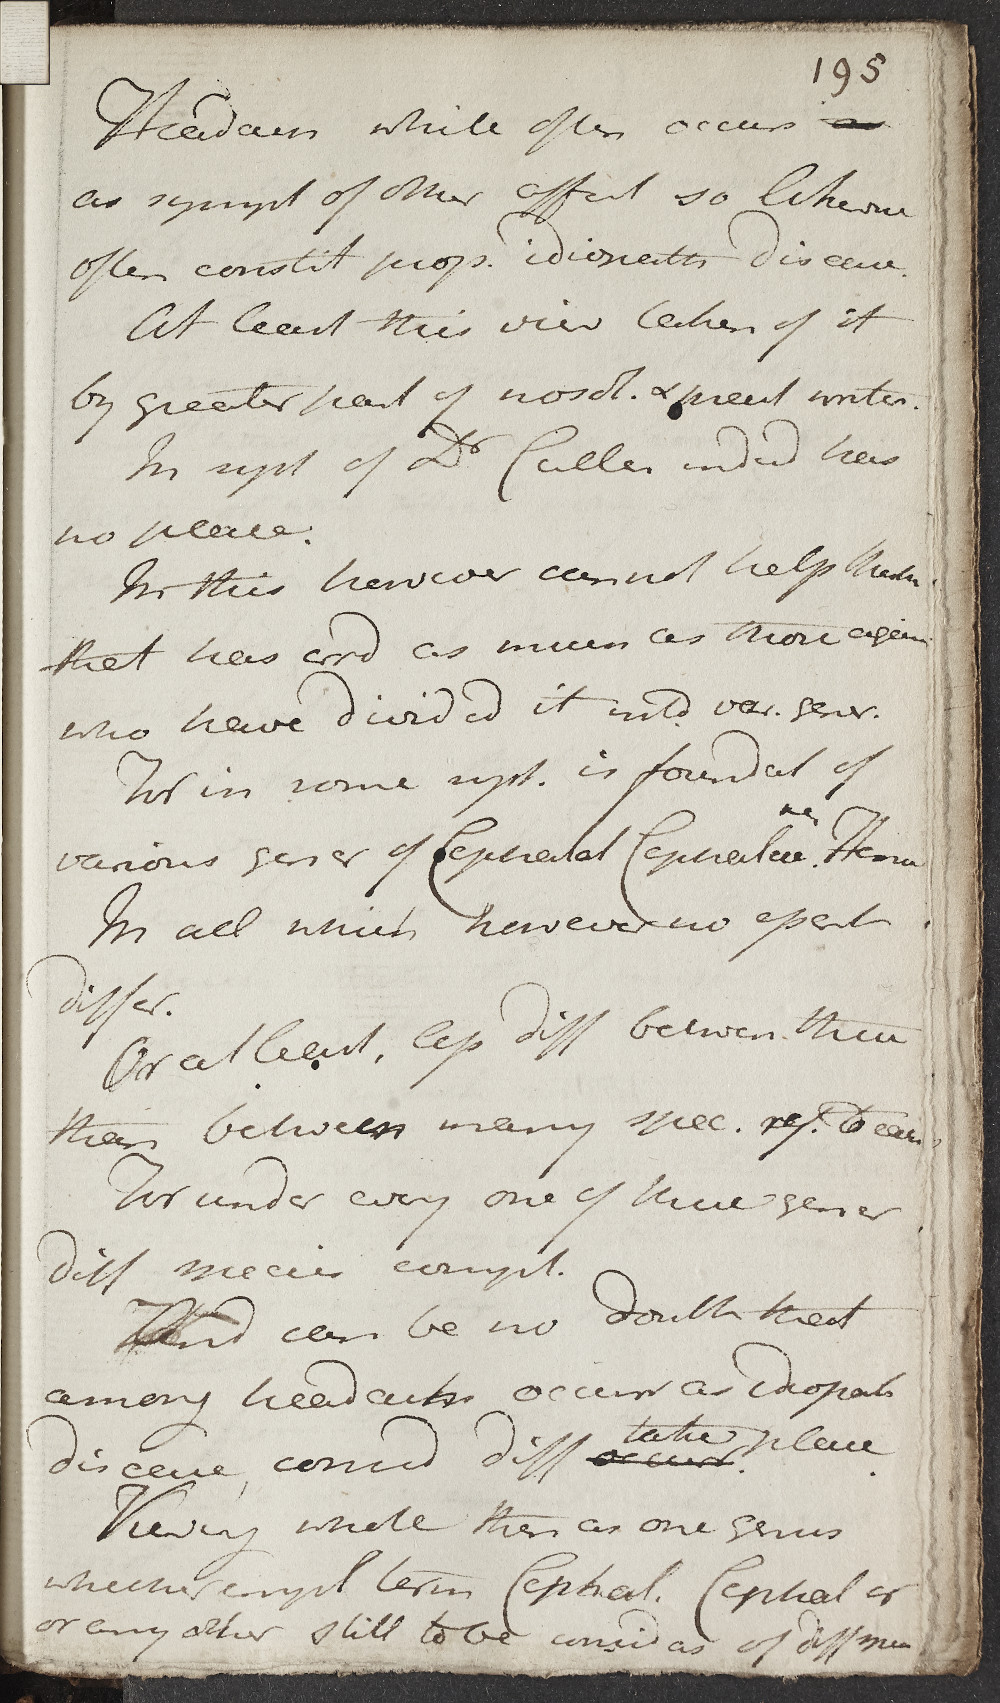 195
Headach while often occurs
as sympt of other affect so likewise
often constit prop. idiopath disease.
At least this view taken of it
by greater part of nosol. & pract writer.
In syst of Dr Cullen indeed has
no place.
In this however cannot help think
that has errd as much as those again
who have divided it into var. gener.
For in some syst. is found at of
various gener of Cephalal Cephalae Hemi
In all which however no apert
differ.
Or at least, less diff between them
than between many spec. ref. to each
For under every one of these gener
diff species compt.
And can be no doubt that
among headachs occurr as idiopath
disease, consid diff take place.
Viewing whole then as one genus
whether empl term Cephal. Cephal er
or any other still to be consid as of diff spec